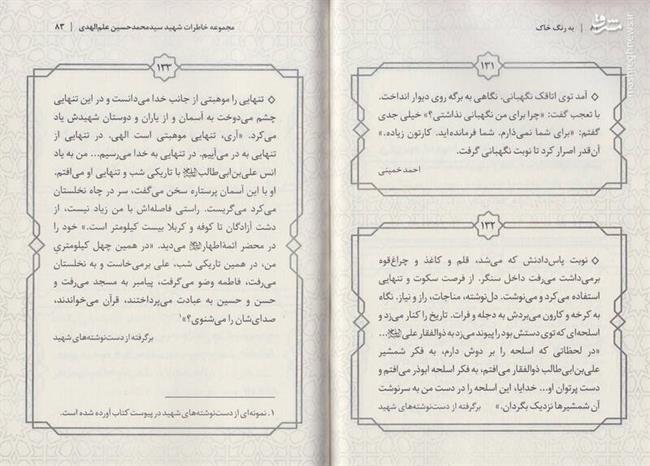 به رنگ خاک
مشرق
mashreghnews.ir
۱۳۱
آمد توی اتاقک نگهبانی. نگاهی به برگه روی دیوار انداخت.
با تعجب گفت: «چرا برای من نگهبانی نذاشتی؟» خیلی جدی
گفتم: «برای شما نمی‌ذارم. شما فرمانده‌اید. کارتون زیاده.»
آن‌قدر اصرار کرد تا نوبت نگهبانی گرفت.
احمد خمینی
۱۳۲
نوبت پاس‌دادنش که می‌شد، قلم و کاغذ و چراغ‌قوه
برمی‌داشت می‌رفت داخل سنگر. از فرصت سکوت و تنهایی
استفاده می‌کرد و می‌نوشت. دل‌نوشته، مناجات، راز و نیاز. نگاه
به کرخه و کارون می‌بردش به دجله و فرات. تاریخ را کنار می‌زد و
اسلحه‌ای که توی دستش بود را پیوند می‌زد به ذوالفقار علی...
«در لحظاتی که اسلحه را بر دوش دارم، به فکر شمشیر
علی‌بن‌ابی‌طالب ذوالفقار می‌افتم، به فکر اسلحه ابوذر می‌افتم و
دست پرتوان او... خدایا، این اسلحه را در دست من به سرنوشت
آن شمشیرها نزدیک بگردان.» برگرفته از دست‌نوشته‌های شهید
مجموعه خاطرات شهید سیدمحمدحسین علم‌الهدی | ۸۳
۱۳۳
تنهایی را موهبتی از جانب خدا می‌دانست و در این تنهایی
چشم می‌دوخت به آسمان و از یاران و دوستان شهیدش یاد
می‌کرد. «آری، تنهایی موهبتی است الهی. در تنهایی از
تنهایی به در می‌آییم. در تنهایی به خدا می‌رسیم... من به یاد
انس علی‌بن‌ابی‌طالب با تاریکی شب و تنهایی او می‌افتم.
او با این آسمان پرستاره سخن می‌گفت، سر در چاه نخلستان
می‌کرد می‌گریست. راستی فاصله‌اش با من زیاد نیست، از
دشت آزادگان تا کوفه و کربلا بیست کیلومتر است.» خود را
در محضر ائمهٔ‌اطهار می‌دید. «در همین چهل کیلومتریِ
من، در همین تاریکی شب، علی برمی‌خاست و به نخلستان
می‌رفت، فاطمه وضو می‌گرفت، پیامبر به مسجد می‌رفت و
حسن و حسین به عبادت می‌پرداختند، قرآن می‌خواندند،
صدای‌شان را می‌شنوی؟»۱
برگرفته از دست‌نوشته‌های شهید
۱. نمونه‌ای از دست‌نوشته‌های شهید در پیوست کتاب آورده شده است.